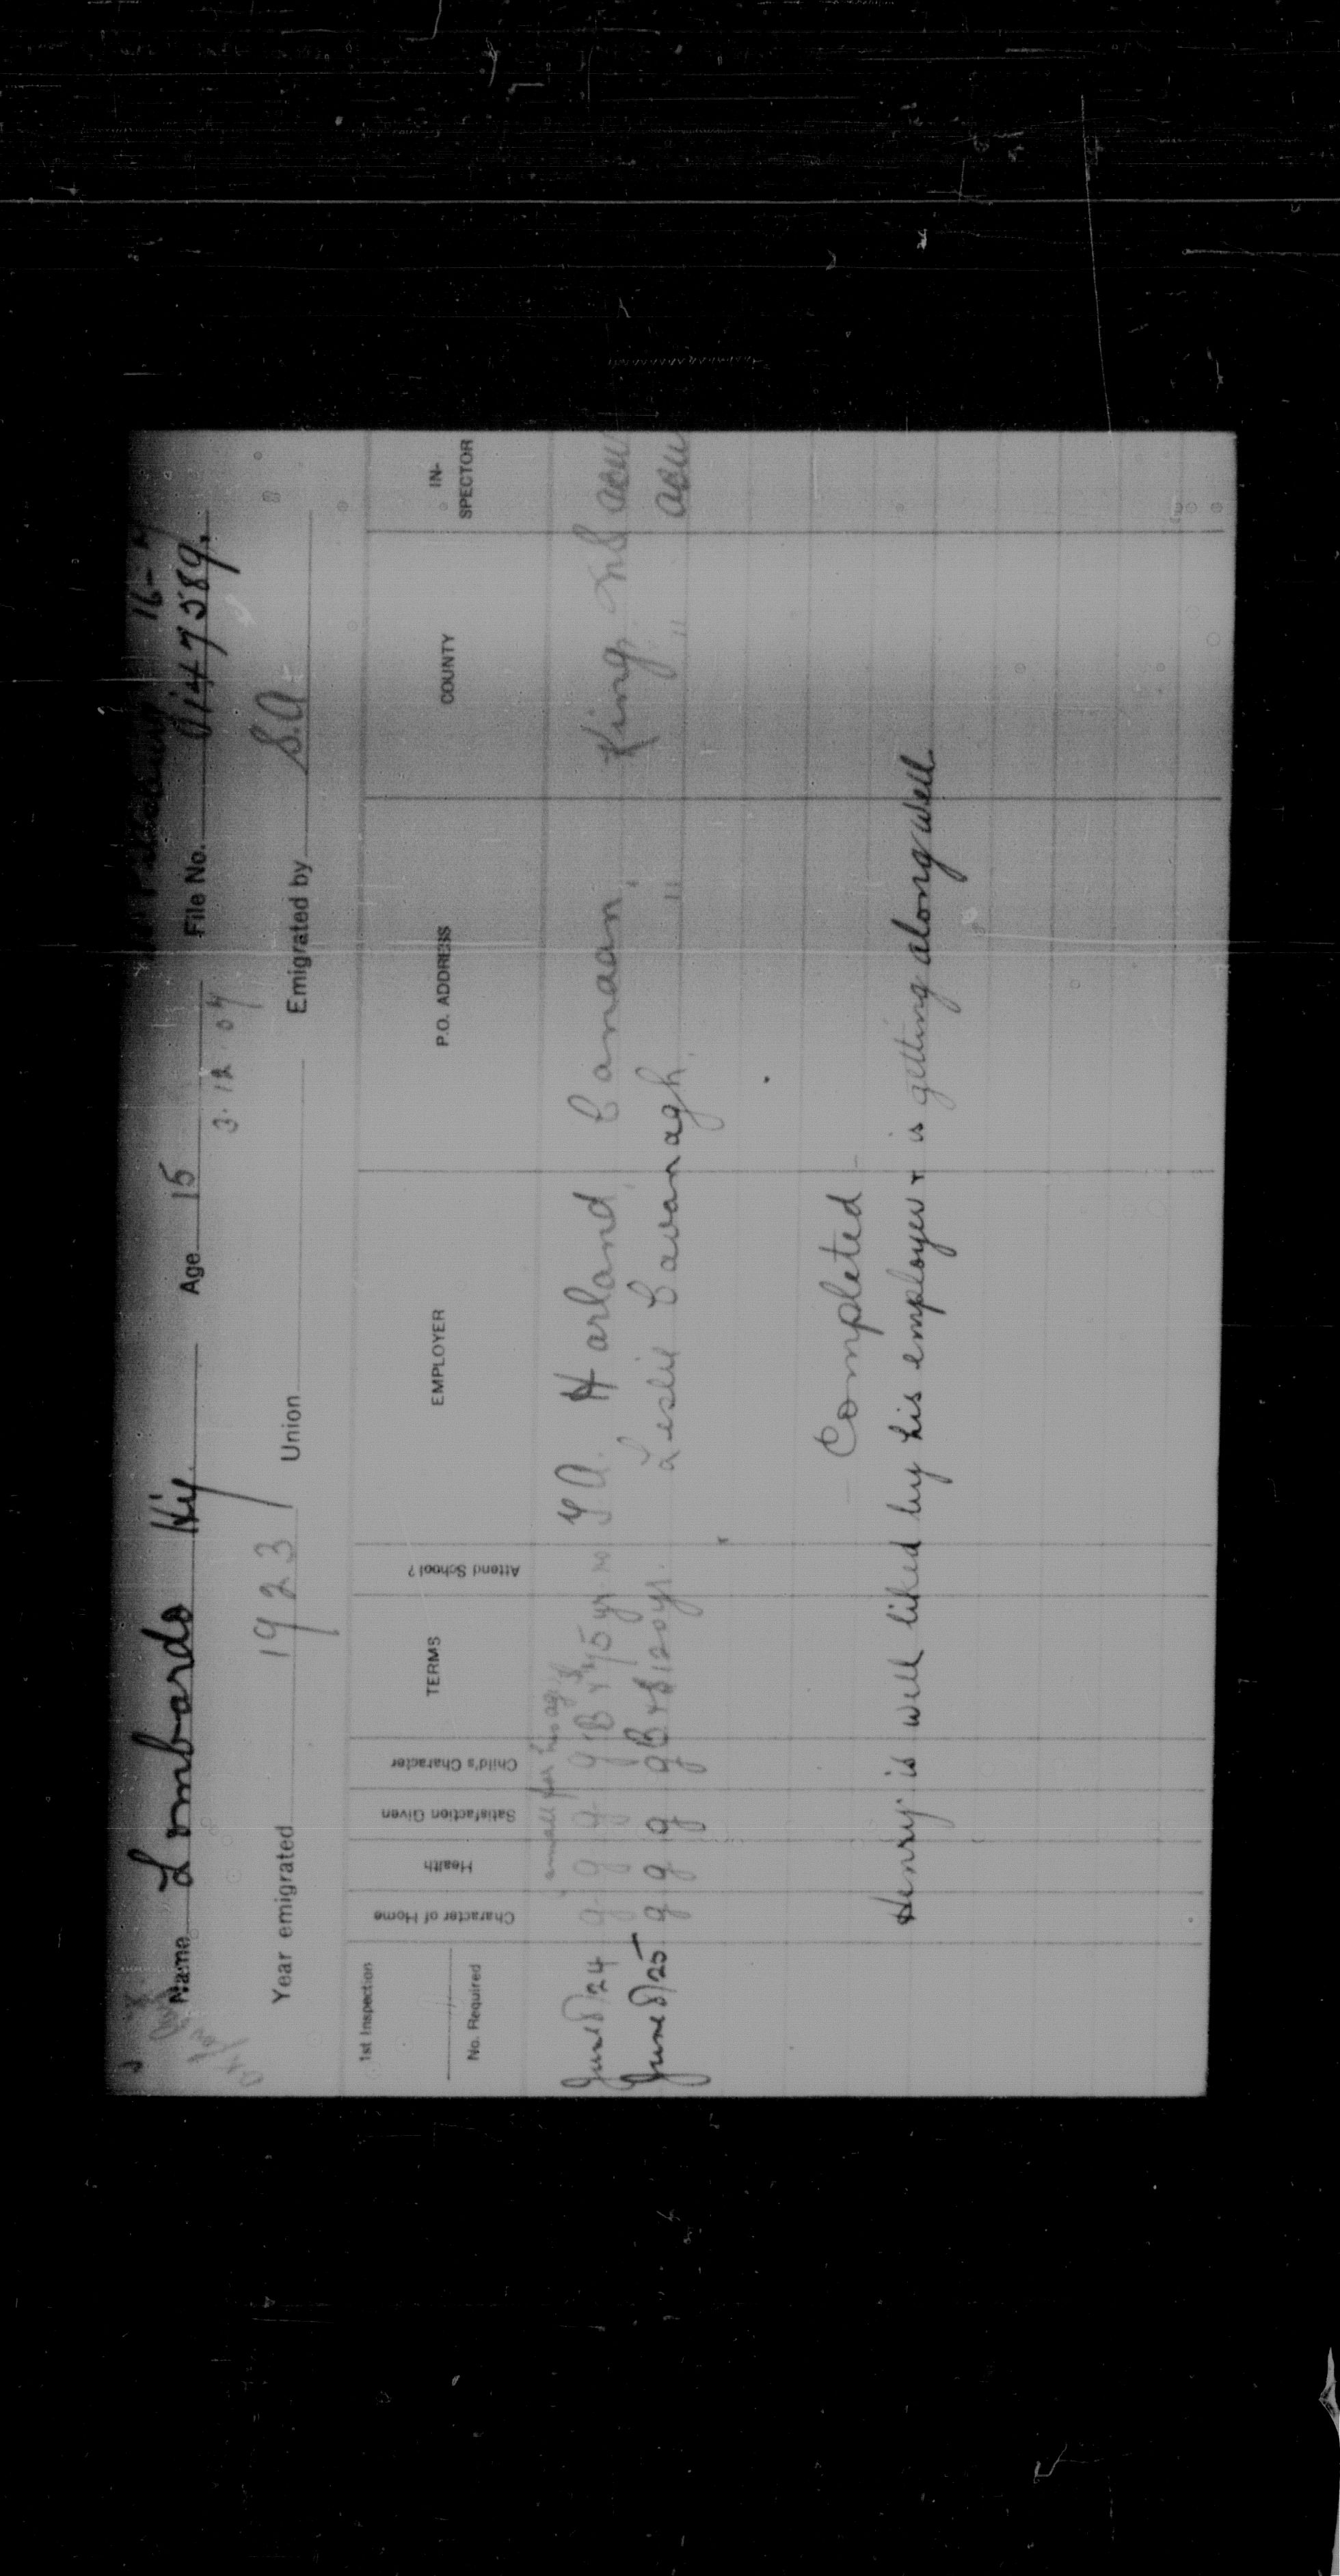 16-
Name Lombardo Hy. Age 15 File No. 147589.
3.12.07
Year emigrated 1923 Union Emigrated by S.A.
1st Inspection
No. Required
Character of Home
Health
Satisfaction Given
Child's Character
TERMS
Attend School?
EMPLOYER
P.O. ADDRESS
COUNTY
IN-SPECTOR
small for his age
June 8/24 g g g g B + $75 yr no A. Harland, Canaan, Kings NS acw
June 8/25 g g g g B + $120 yr. Leslie Cavanagh, " " acw
- Completed -
Henry is well liked by his employer + is getting along well.